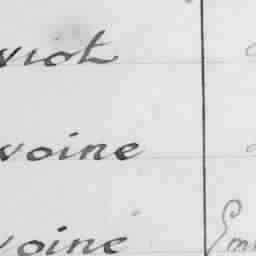 viot
voine
voine Em